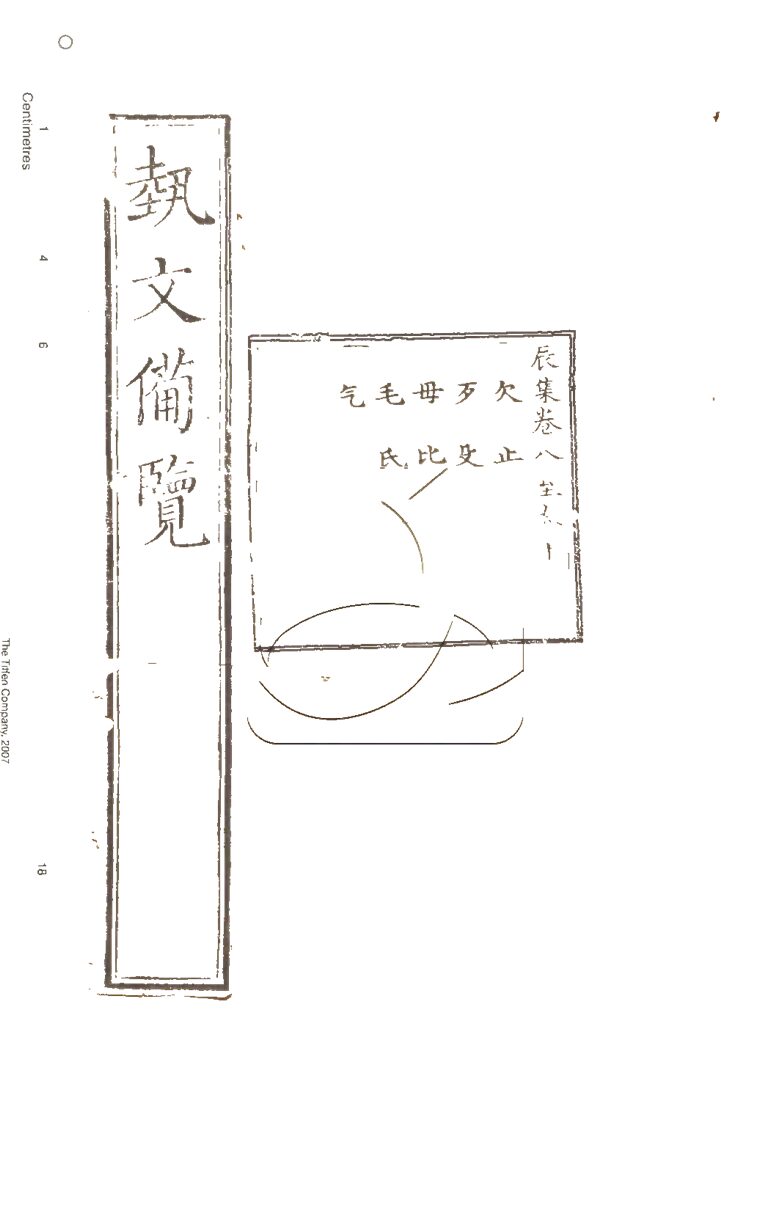 Centimetres
1
4
6
18
The Tiffen Company, 2007
辰集卷八至卷十
欠 止
歹 殳
毋 比
毛 氏
气
埶文備覽